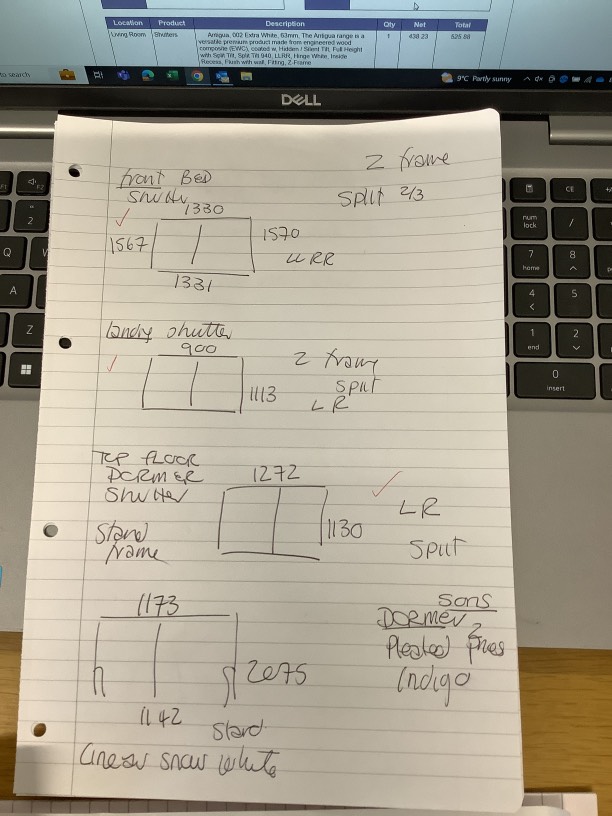 Location Product Description Qty Net Total
Living Room Shutters Antigua, 002 Extra White, 63mm, The Antigua range is a 1 438.23 525.88
versatile premium product made from engineered wood
composite (EWC), coated w, Hidden / Silent Tilt, Full Height
with Split Tilt, Split Tilt 940, LLRR, Hinge White, Inside
Recess, Flush with wall, Fitting, Z-Frame
to search
9°C Partly sunny
DELL
Z frame
front Bed
shutter
Split 2/3
1330
1567
1570
LLRR
1331
landing shutter
900
Z frame
split
1113
LR
TOP FLOOR
DORMER
Shutter
1272
LR
1130
Stand
frame
Split
1173
Sons
DORMER
Pleated
Indigo
2075
1142
Stand
Linear snow white